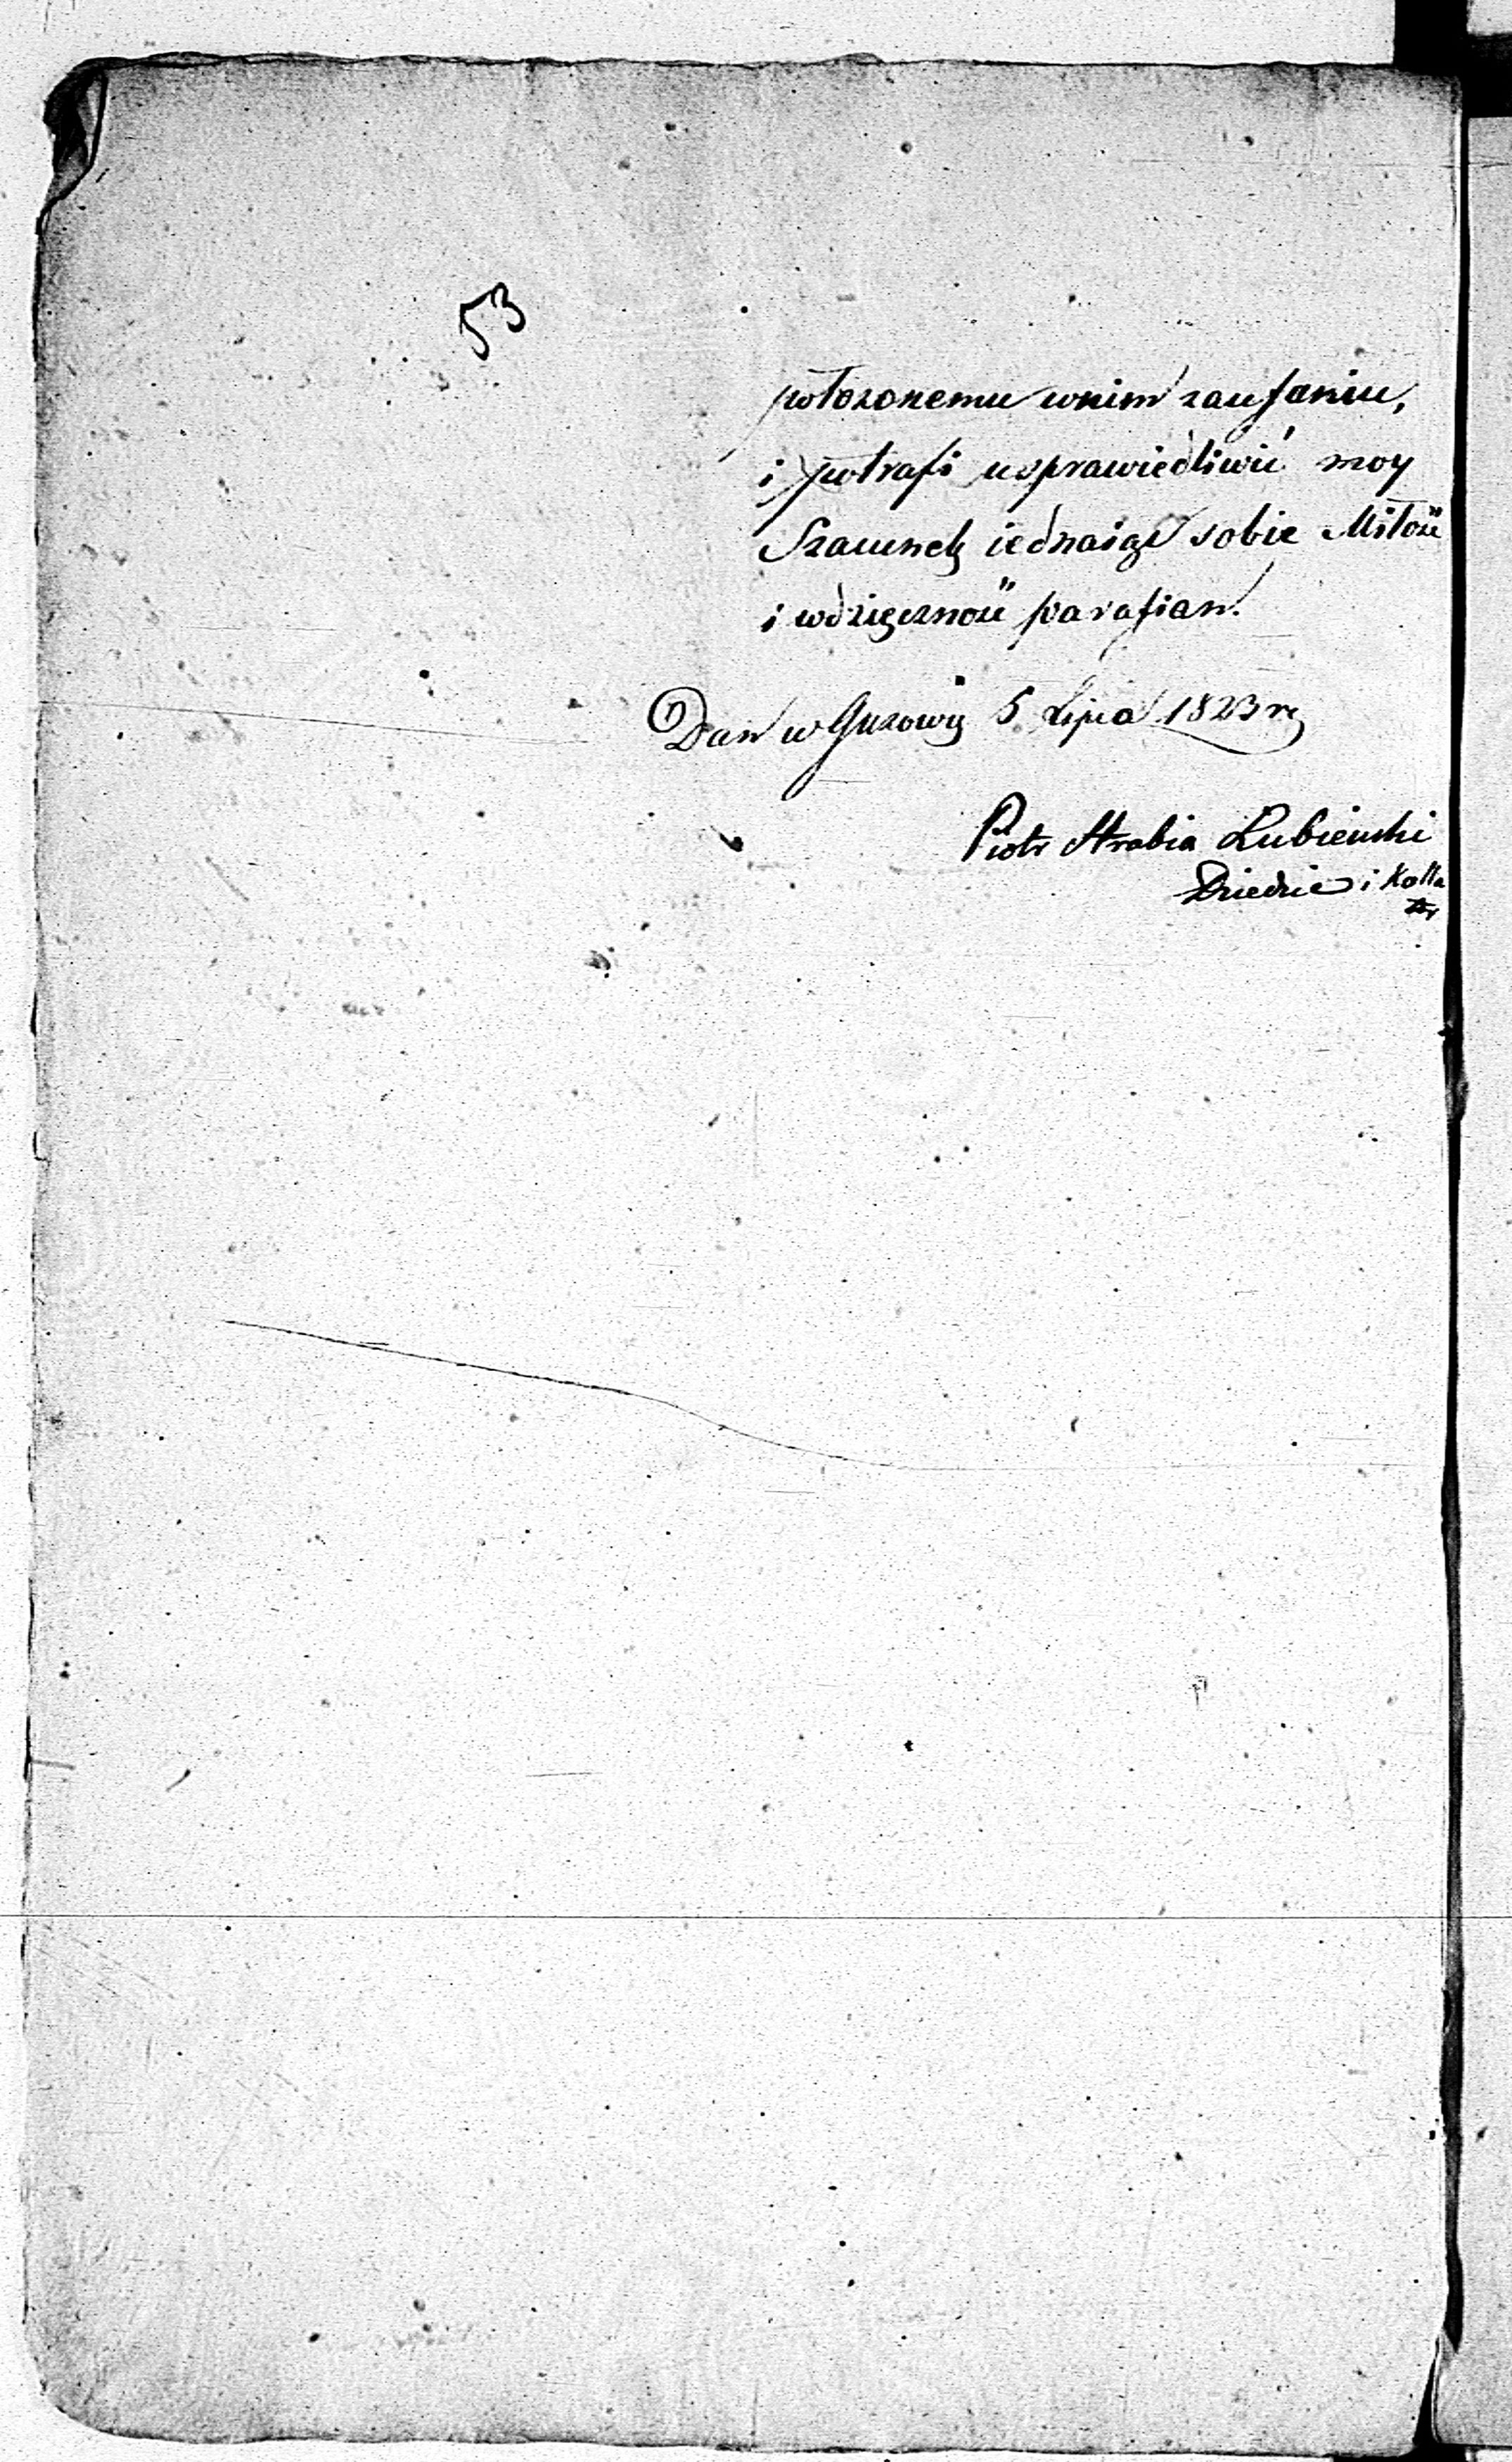 53
połozonemu wnim zaufaniu,
i potrafi usprawiedliwić moy
Szacunek iednaiąc sobie Miłość
i wdzięczność parafian.
Dan w Guzowie 5 Lipca 1823 r
Piotr Hrabia Łubieński
Dziedzic i Kolla
tor